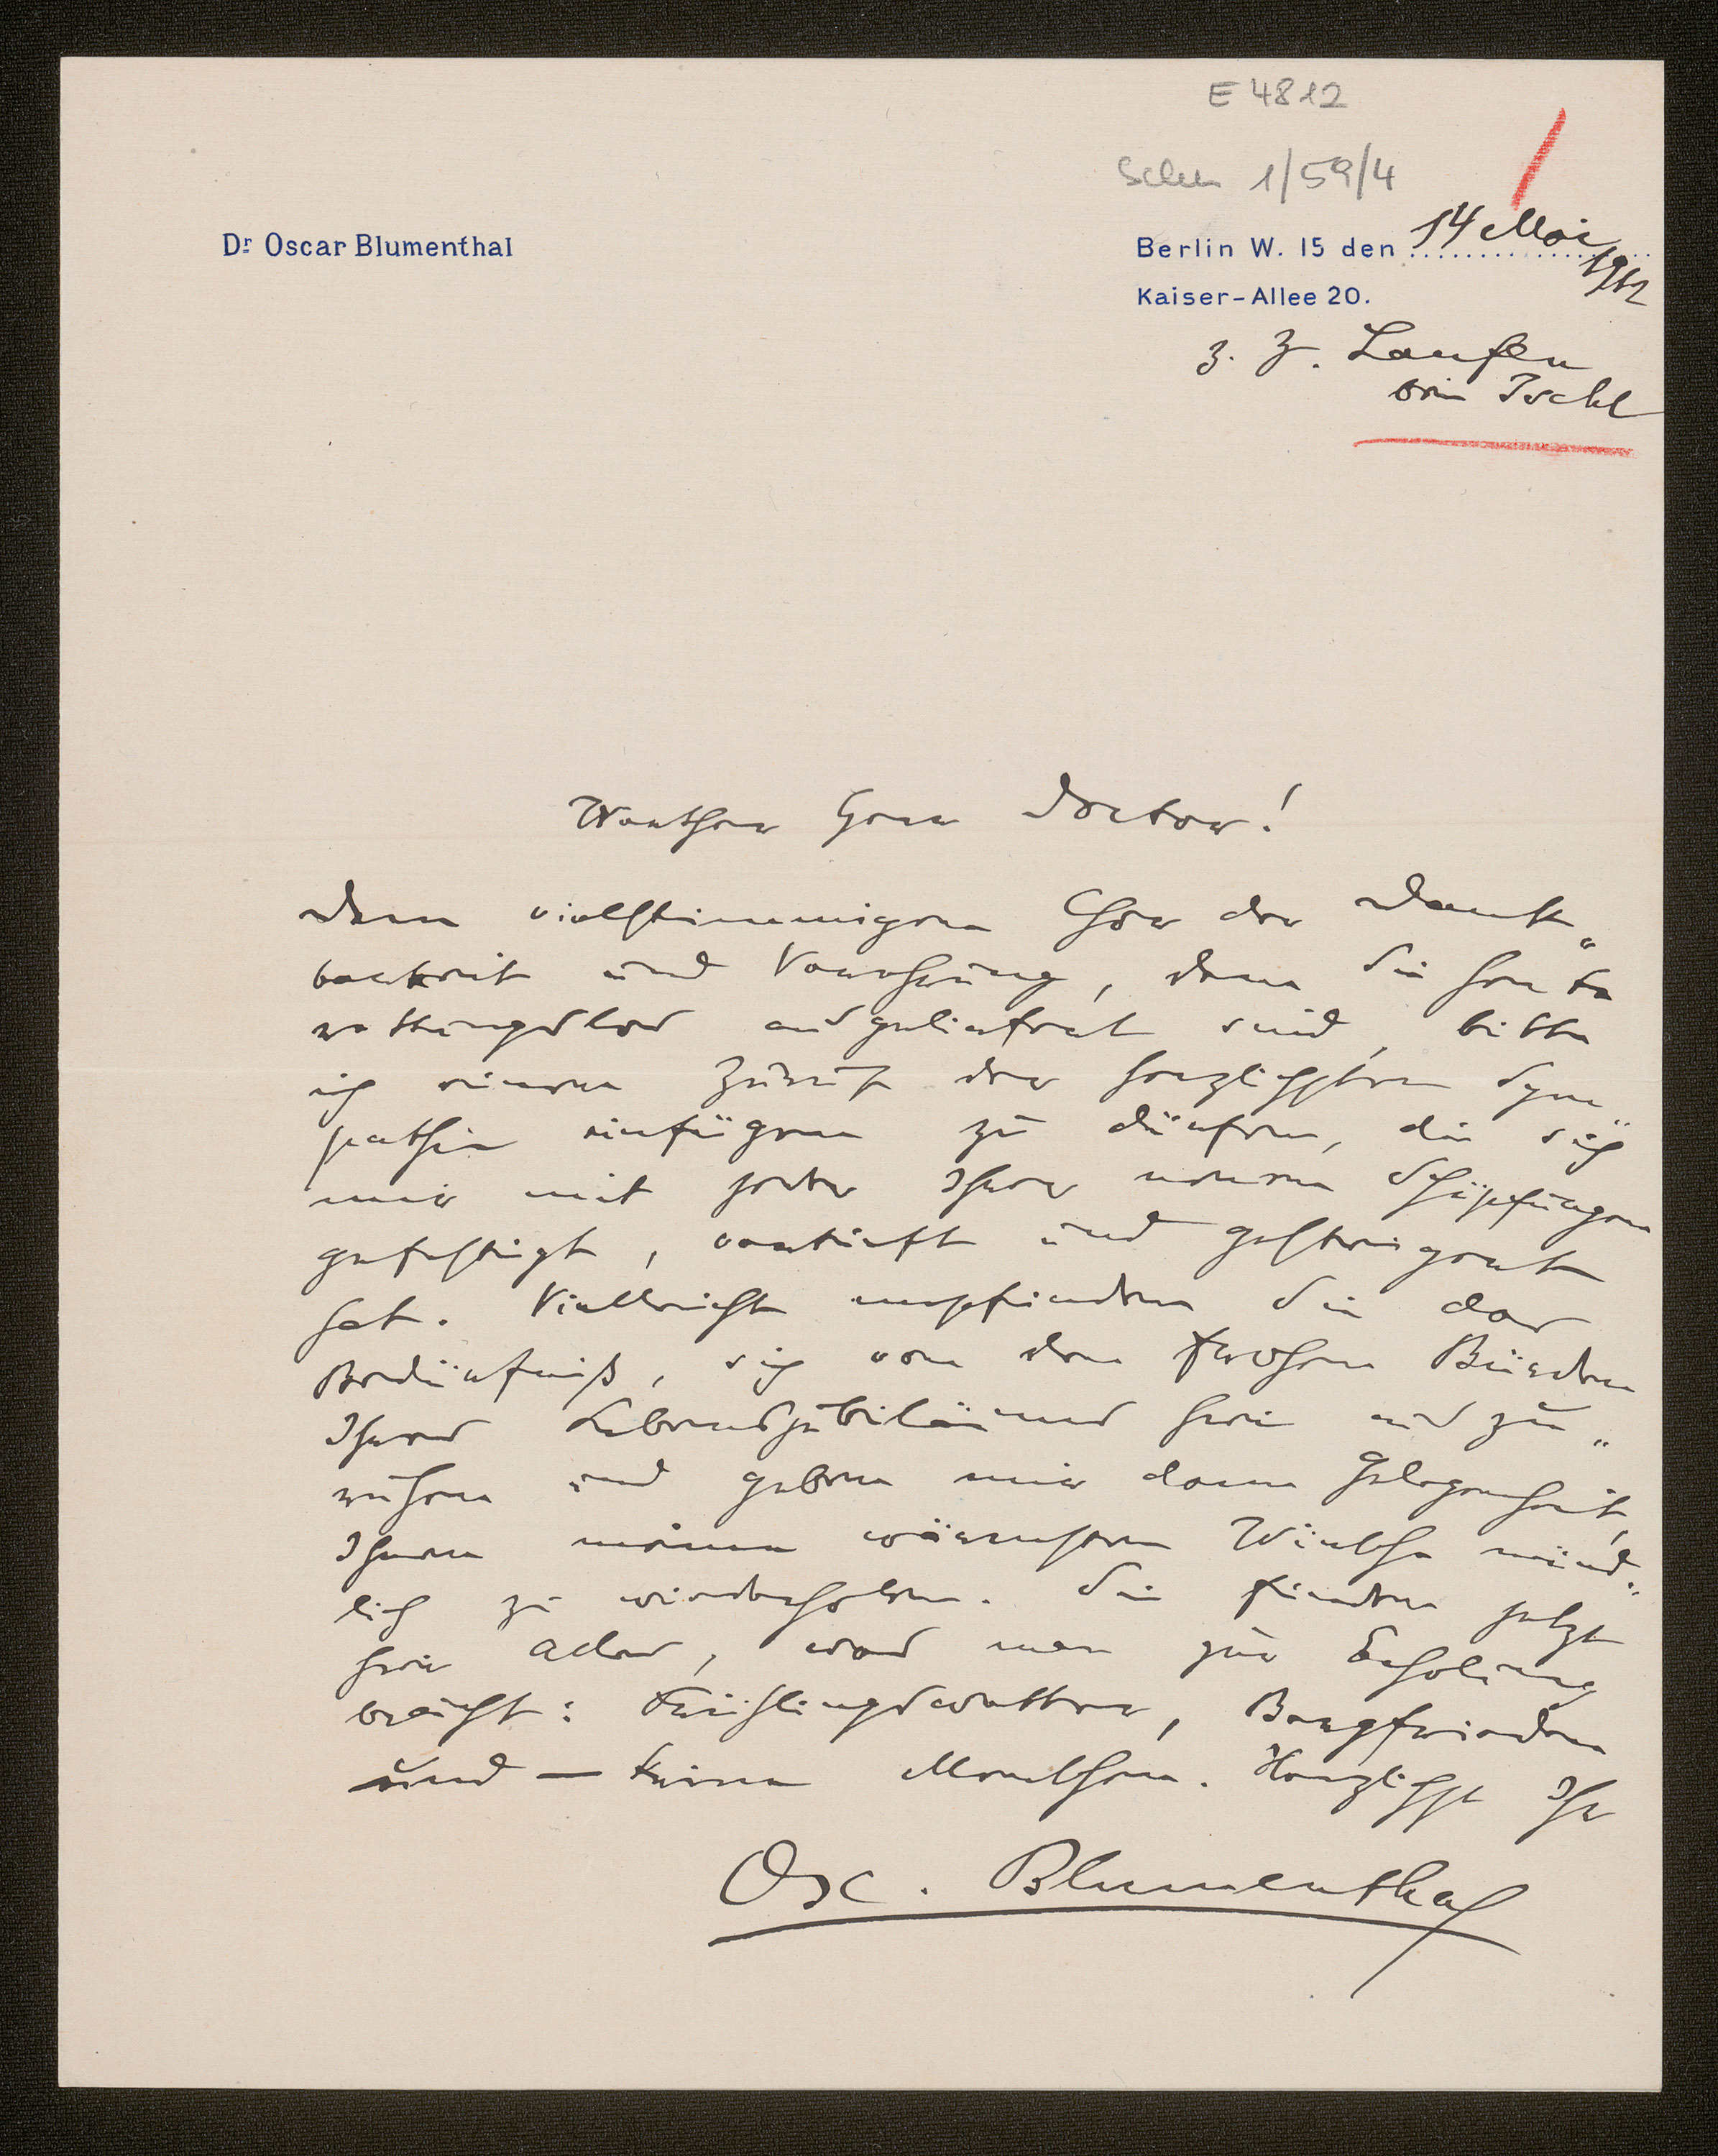 E 4812
Schn 1/59/4
Dr Oscar Blumenthal
Berlin W. 15 den 14 Mai 1912
Kaiser-Allee 20.
z. Z. Laufen
bei Ischl
Werther Herr Doctor!
Dem vielstimmigen Chor der Dank„
barkeit und Verehrung, dem Sie heute
rettungslos ausgeliefert sind, bitte
ich einen Zuruf der herzlichsten Sym„
pathie einfügen zu dürfen, die sich
mir mit jeder Ihrer neuen Schöpfungen
gefestigt, vertieft und gesteigert
hat. Vielleicht empfinden Sie das
Bedürfniß, sich von den frohen Bürden
Ihres Lebensjubiläums hier aus zu„
ruhen und geben mir dann Gelegenheit,
Ihnen meine wärmsten Wünsche münd„
lich zu wiederholen. Sie finden jetzt
hier alles, was man zur Erholung
braucht: Frühlingswetter, Bergfrieden
und — keine Menschen. Herzlichst Ihr
Osc. Blumenthal